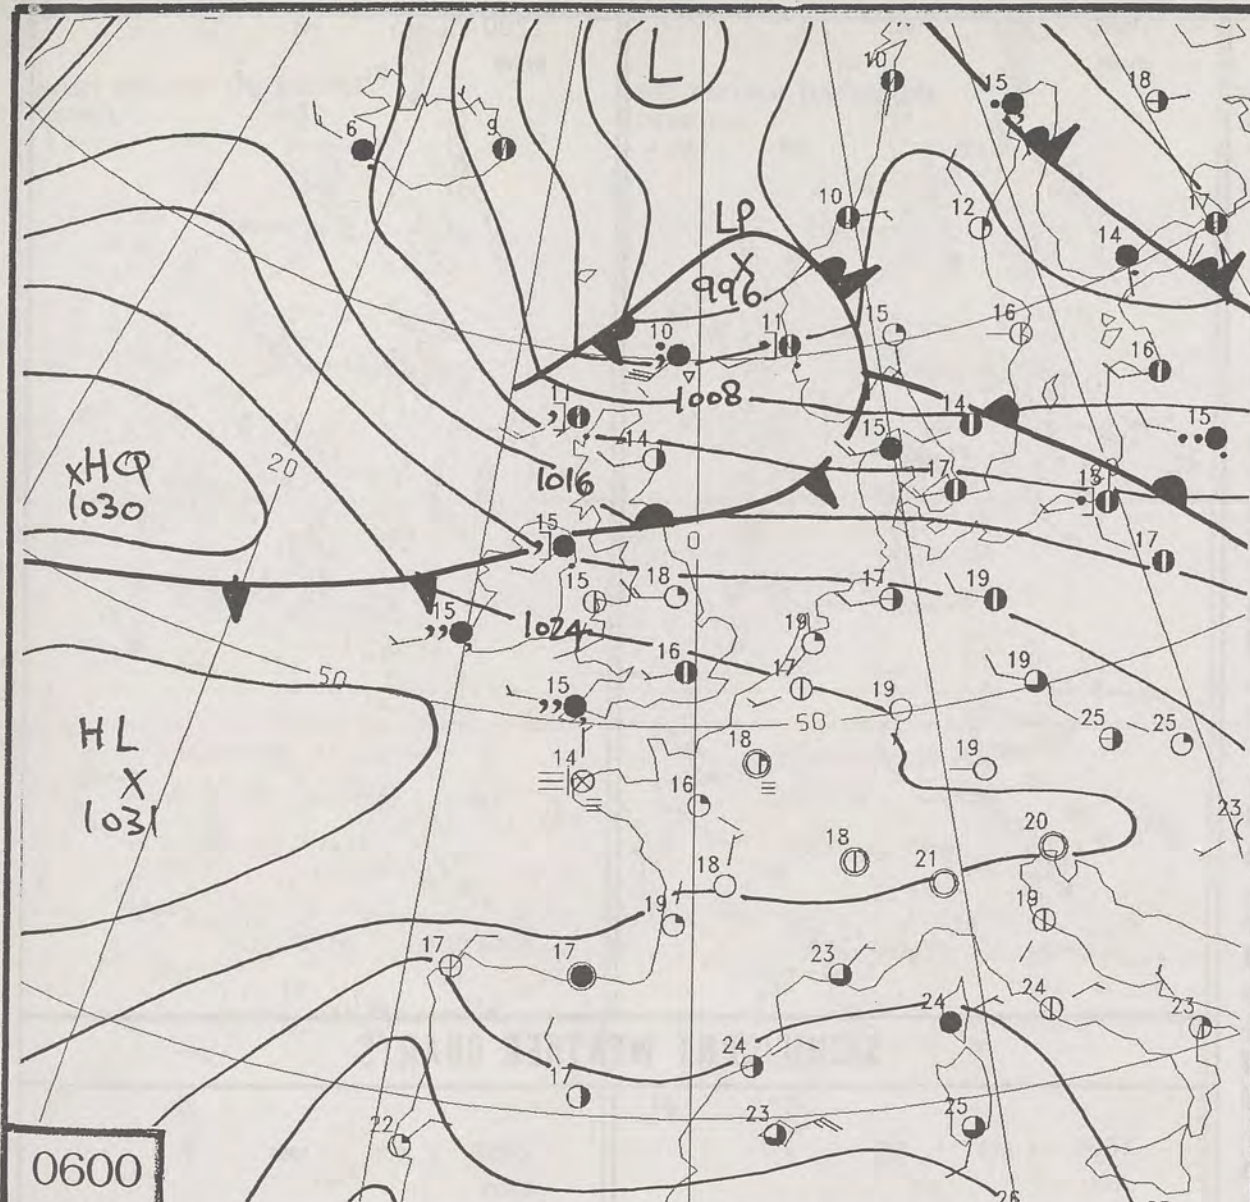 L
10
15
18
6
9
10
LP
12
17
14
X
996
10
11
15
16
16
1008
11
14
14
15
15
xHQ
1030
20
1016
17
15
15
0
17
15
18
17
19
15
1024
19
50
16
17
19
15
19
50
25
25
HL
X
1031
18
14
19
16
23
20
18
18
21
19
19
17
17
23
24
24
23
24
17
22
23
25
26
0600